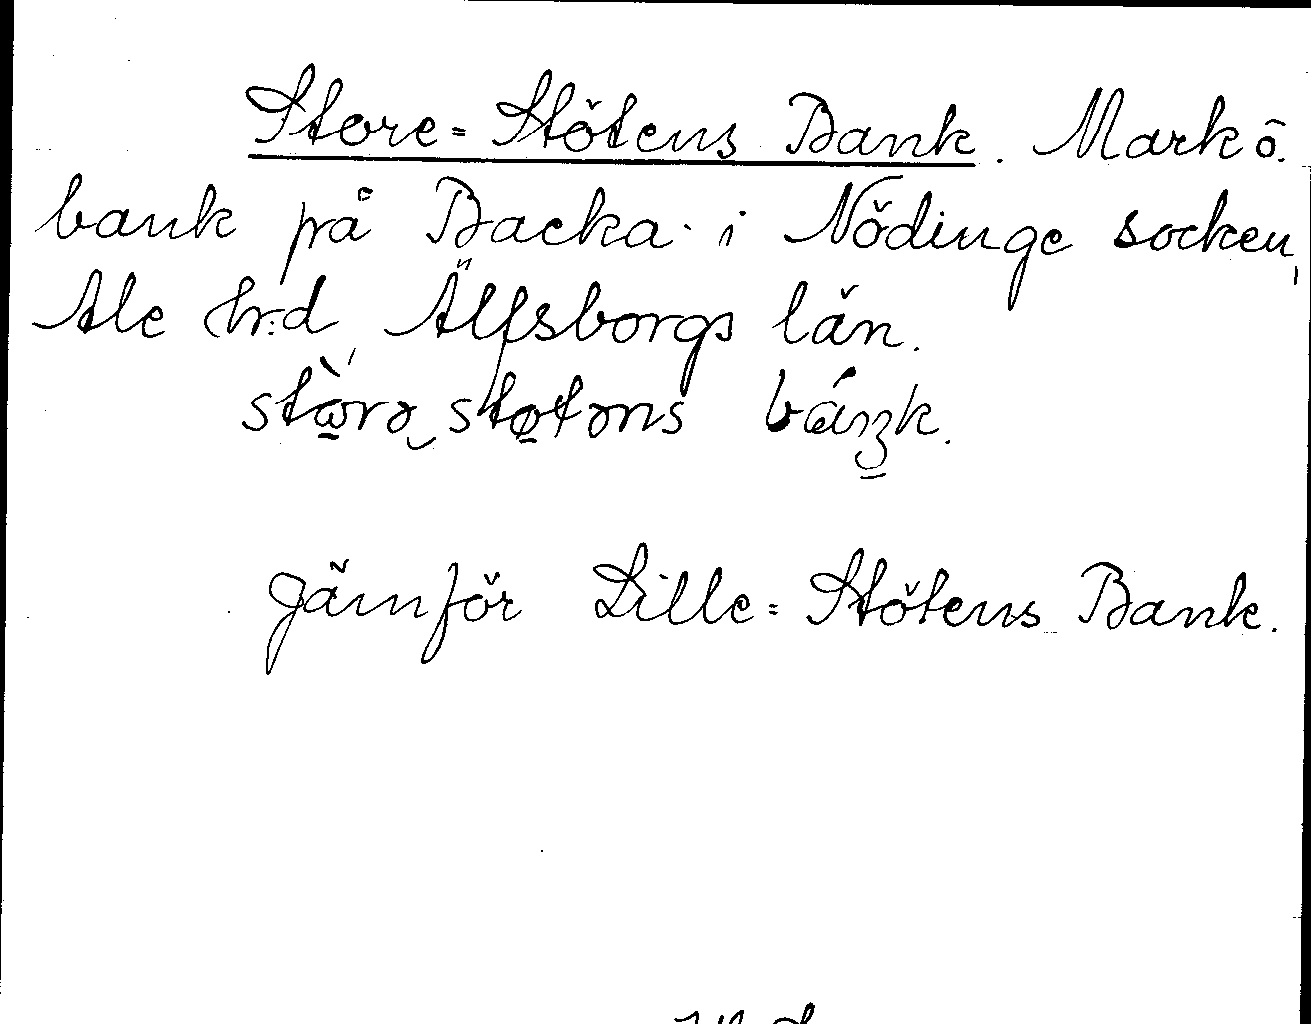 Store-Stötens Bank. Mark o.
bank på Backa i Nödinge socken,
Ale h:d, Älfsborgs län.
Jämför Lille-Stötens Bank.